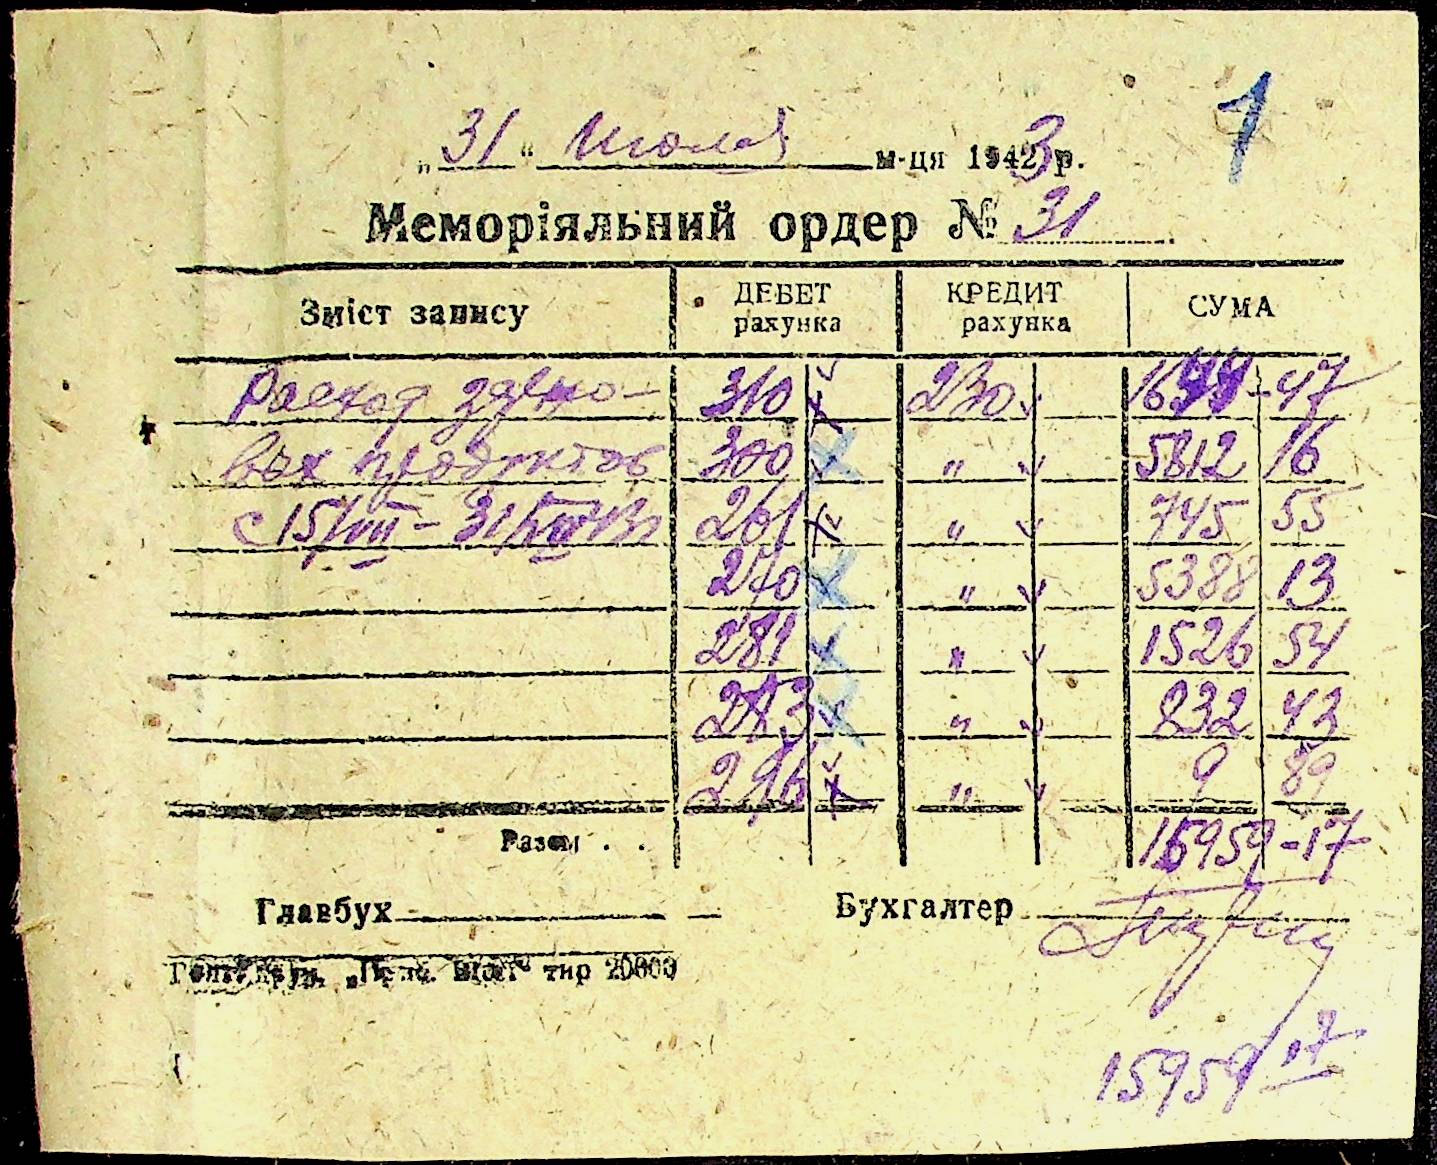 1
„31“ Июля м-ця 1943 р.
Меморіяльний ордер № 31
Зміст запису ДЕБЕТ рахунка КРЕДИТ рахунка СУМА
Расход зерно- 310 230 1644-47
вых продуктов 300 " 5812 16
с 15/VII - 31/VII 43 261 " 745 55
270 " 5388 13
281 " 1526 54
283 " 832 43
296 " 9 89
Разом . . 15959-17
Главбух Бухгалтер
тир 20000
15959 17